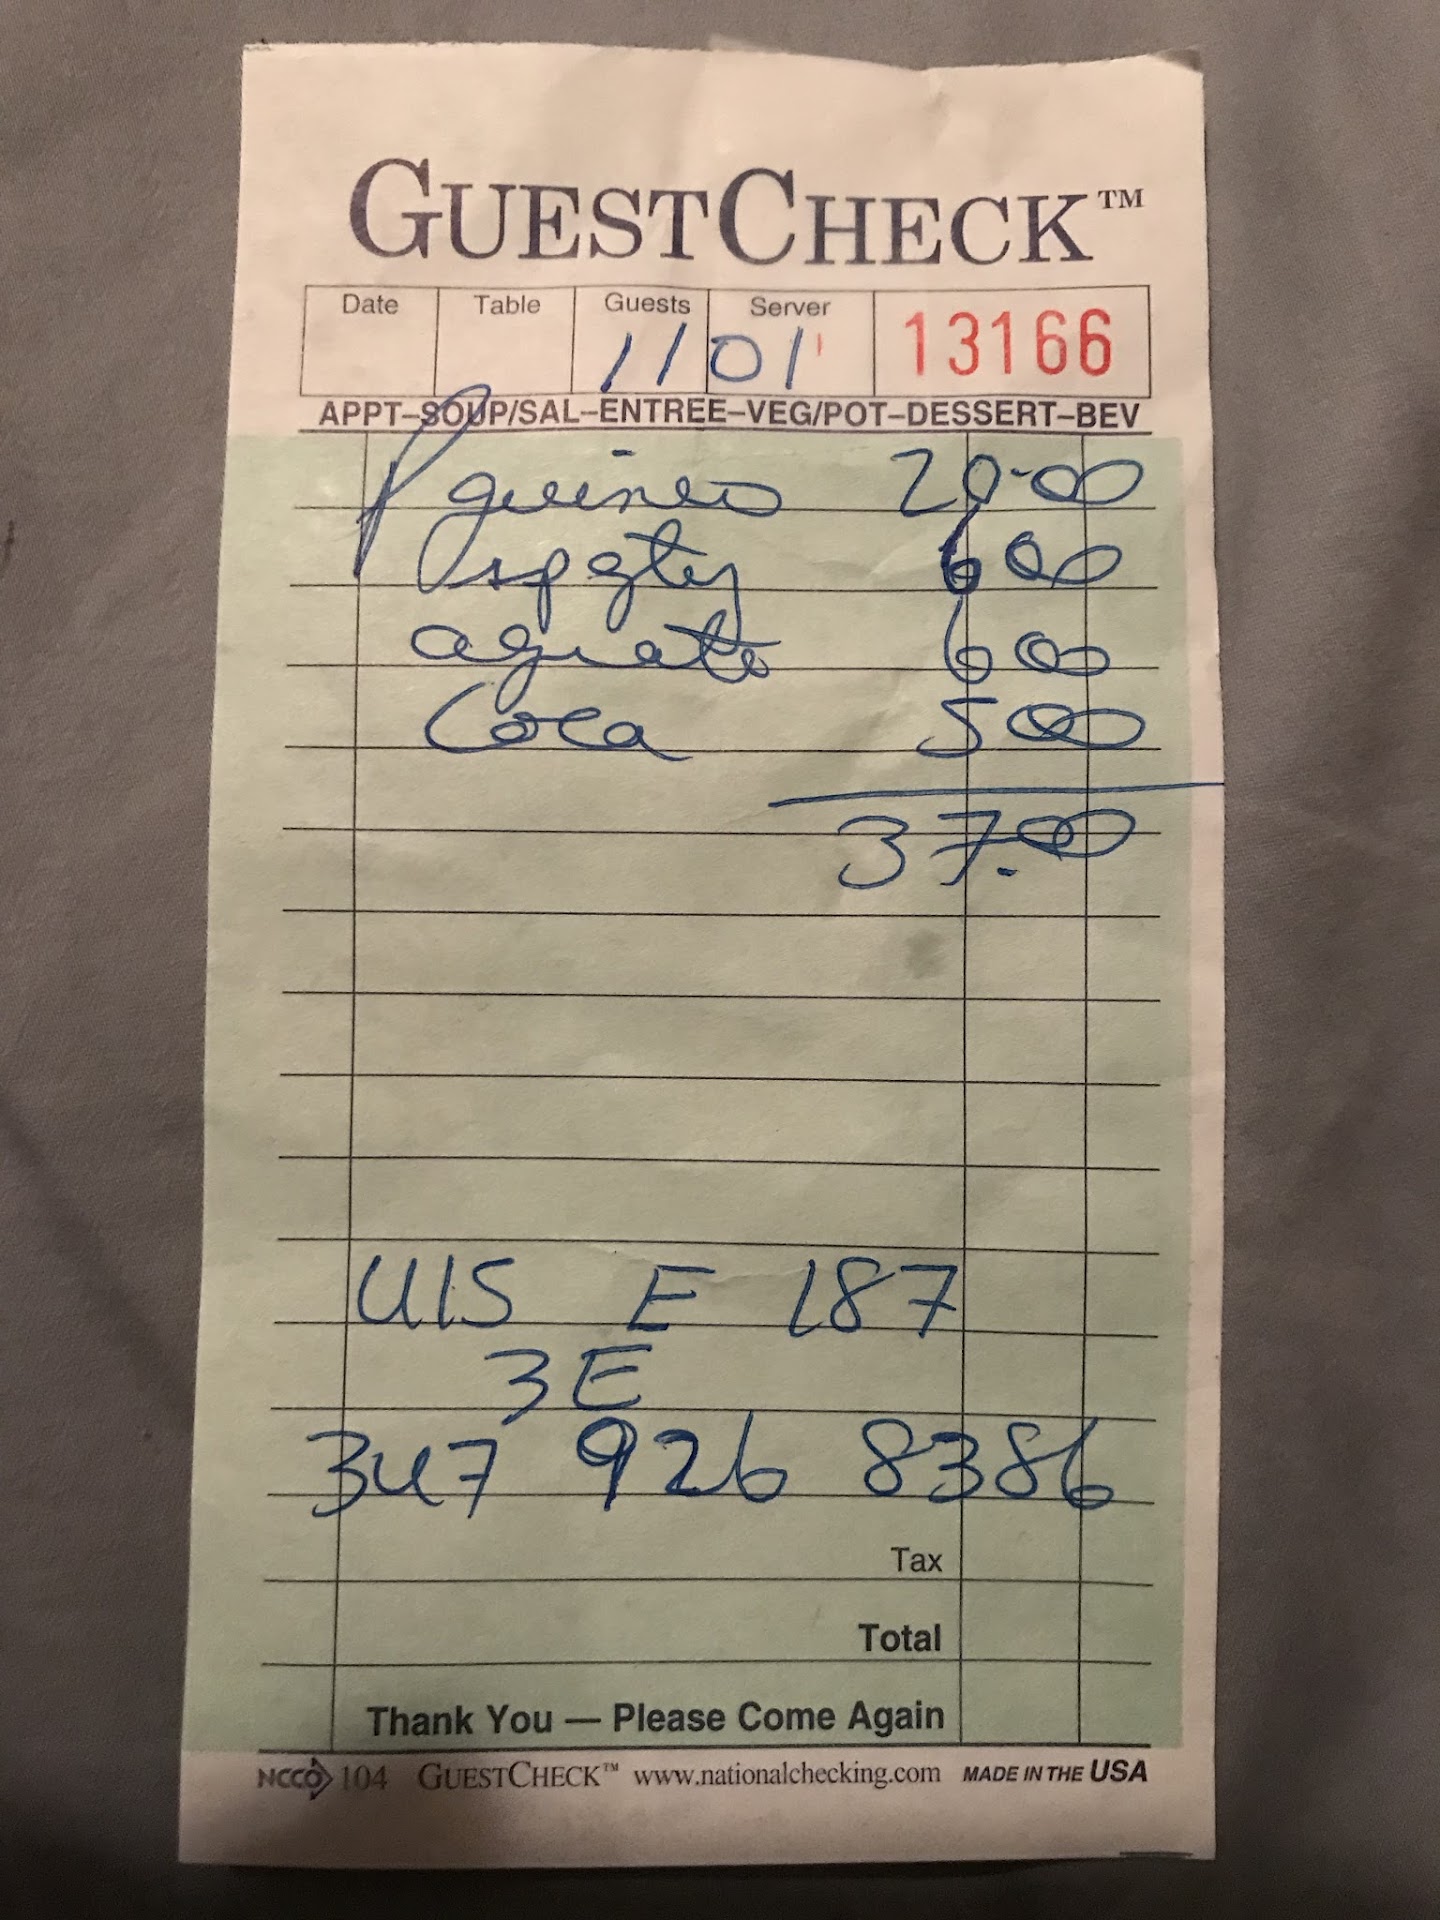 GUESTCHECK™
Date Table Guests Server
1101 13166
APPT–SOUP/SAL–ENTREE–VEG/POT–DESSERT–BEV
guineo 20.00
600
aguate 600
Coca 500
37.00
415 E 187
3E
347 926 8386
Tax
Total
Thank You — Please Come Again
NCCO 104 GUESTCHECK™ www.nationalchecking.com MADE IN THE USA